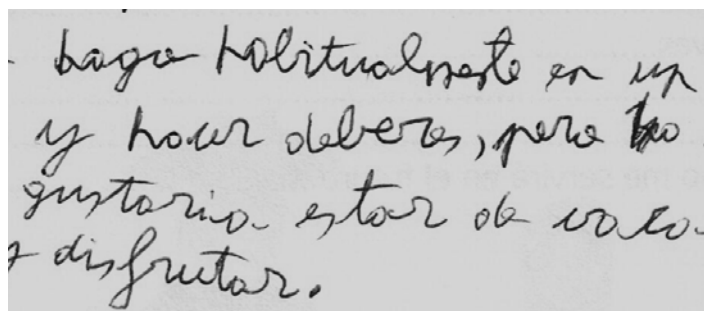 hago habitualmente en un
y hacer deberes, pero
gustaria estar de vaca-
y disfrutar.